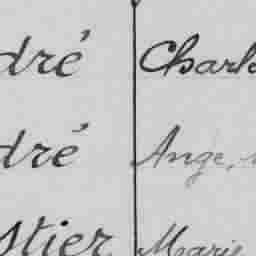 dré Charle
dré Ange,
stier Marie